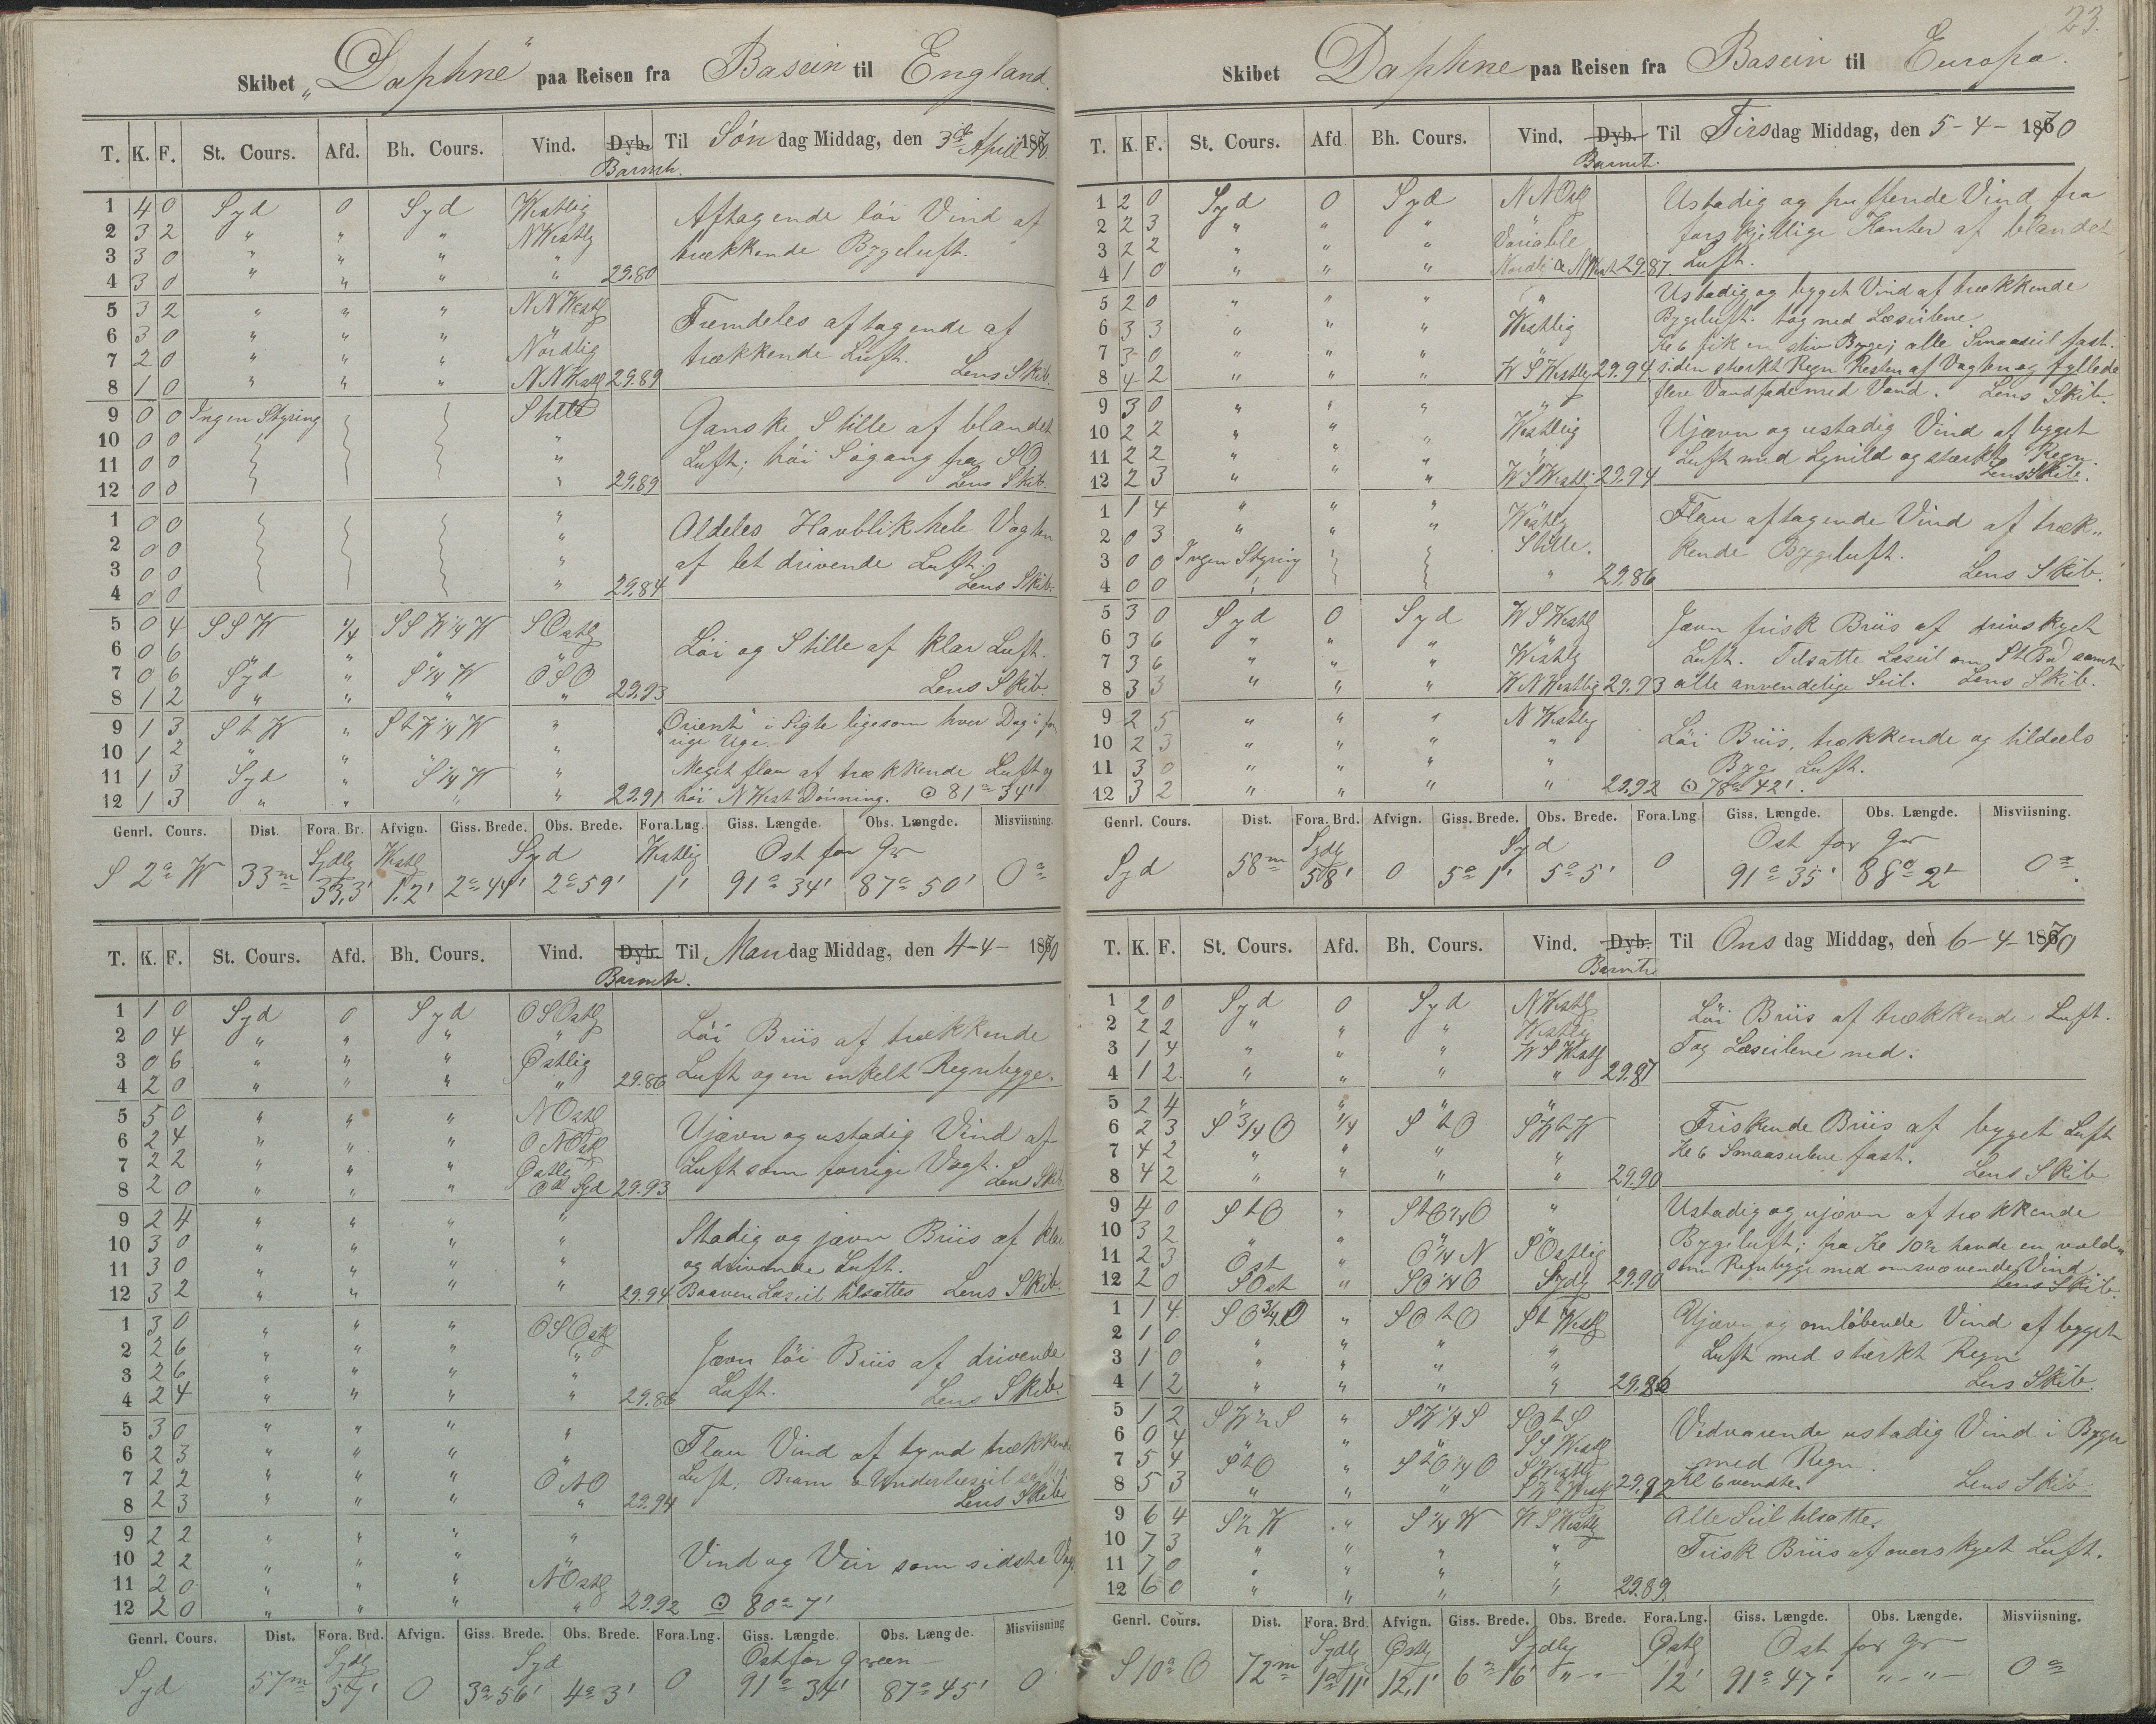 Skibet „Daphne" paa Reisen fra Basein til England.
T. K. F. St. Cours. Afd. Bh. Cours. Vind. Dyb. Barmtr. Til Søndag Middag, den 3die April 1870
1 4 0 Syd 0 Syd Westlig Aftagende løi Vind af
2 3 2 " " " NWestlg trækkende Bygeluft.
3 3 0 " " " "
4 3 0 " " " " 29.80
5 3 2 " " " NNWestlg Fremdeles aftagende af
6 3 0 " " " Nordlig trækkende Luft.
7 2 0 " " " "
8 1 0 " " " NNWestlg 29.89 Lens Skib.
9 0 0 Ingen Styring Stille Ganske Stille af blandet
10 0 0 " Luft; høi Søgang fra SO
11 0 0 "
12 0 0 " 29.89 Lens Skib.
1 0 0 " Aldeles Havblik hele Vagten
2 0 0 " af let drivende Luft.
3 0 0 "
4 0 0 " 29.84 Lens Skib.
5 0 4 SSW 1/4 SSW1/4W SOstlg Løi og Stille af klar Luft.
6 0 6 " " " "
7 0 6 Syd " S1/4W OSO
8 1 2 " " " " 29.93 Lens Skib.
9 1 3 StW " StW1/4W " „Orient" i Sigte ligesom hver Dag i for
10 1 2 " " " " rige Uge.
11 1 3 Syd " S1/4W " Meget flau af trækkende Luft og
12 1 3 " " " " 29.91 høi NWest Dønning. ⊙ 81° 34'
Genrl. Cours. Dist. Fora. Br. Afvign. Giss. Brede. Obs. Brede. Fora.Lng. Giss. Længde. Obs. Længde. Misviisning.
Sydlg Westlg Syd Westlig Ost for Gr
S 2° W 33m 33,3' 1.2' 2° 44' 2° 59' 1' 91° 34' 87° 50' 0°
T. K. F. St. Cours. Afd. Bh. Cours. Vind. Dyb. Barmtr. Til Mandag Middag, den 4-4- 1870
1 1 0 Syd 0 Syd OSOstlg Løi Briis af trækkende
2 0 4 " " " " Luft og en enkelt Regnbyge.
3 0 6 " " " Østlig
4 2 0 " " " " 29.86
5 5 0 " " " NOstlg Ujævn og ustadig Vind af
6 2 4 " " " ONOstl Luft som forrige Vagt.
7 2 2 " " " Østlg
8 2 0 " " " Syd 29.93 Lens Skib.
9 2 4 " " " " Stadig og jævn Briis af klar
10 3 0 " " " " og drivende Luft.
11 3 0 " " " "
12 3 2 " " " " 29.94 Baaven Læseil tilsattes Lens Skib.
1 3 0 " " " OSOstlg Jævn løi Briis af drivende
2 2 6 " " " " Luft.
3 2 6 " " " "
4 2 4 " " " " 29.86 Lens Skib.
5 3 0 " " " " Flau Vind af tynd trækkende
6 2 3 " " " " Luft; Bram & Underlæseil
7 2 2 " " " OtO
8 2 3 " " " " 29.94 Lens Skib.
9 2 2 " " " " Vind og Veir som sidste Vagt
10 2 2 " " " "
11 2 0 " " " NOstlg
12 2 0 " " " " 29.92 ⊙ 80° 7'
Genrl. Cours. Dist. Fora. Brd. Afvign. Giss. Brede. Obs. Brede. Fora.Lng. Giss. Længde. Obs. Længde. Misviisning
Sydlg Syd Ost for Green
Syd 57m 57' 0 3° 56' 4° 3' 0 91° 34' 87° 45' 0
23.
Skibet Daphne paa Reisen fra Basein til Europa.
T. K. F. St. Cours. Afd Bh. Cours. Vind. Dyb. Barmtr. Til Tirsdag Middag, den 5-4- 1870
1 2 0 Syd 0 Syd NNOstlg Ustadig og puffende Vind fra
2 2 3 " " " " forskjellige Kanter af blandet
3 2 2 " " " Variable Luft.
4 1 0 " " " Nordlg & NWest 29.87
5 2 0 " " " " Ustadig og bygget Vind af trækkende
6 3 3 " " " Westlig Bygeluft. tog ned Læseilene.
7 3 0 " " " " Kl 6 fik en stiv Byge; alle Smaaseil fast.
8 4 2 " " " WSWestlg 29.94 siden stærkt Regn Resten af Vagten og fyllede
9 3 0 " " " " flere Vandfade med Vand. Lens Skib.
10 2 2 " " " Westlig Ujævn og ustadig Vind af bygget
11 2 2 " " " " Luft med Lynild og stærkt Regn.
12 2 3 " " " WSWestlg 29.94 Lens Skib.
1 1 4 " " " Westlg Flau aftagende Vind af træk„
2 0 3 " " " Stille. kende Bygeluft.
3 0 0 Ingen Styring
4 0 0 " 29.86 Lens Skib.
5 3 0 Syd 0 Syd WSWestlg Jævn frisk Briis af drivskyet
6 3 6 " " " " Luft. Tilsatte Læseil om StBd samt
7 3 6 " " " Westlg
8 3 3 " " " WNWestlig 29.93 alle anvendelige Seil. Lens Skib.
9 2 5 " " " NWestlg Løi Briis, trækkende og tildeels
10 2 3 " " " " Byg Luft.
11 3 0 " " " "
12 3 2 " " " " 29.92 ⊙ 78° 42'.
Genrl. Cours. Dist. Fora. Brd. Afvign. Giss. Brede. Obs. Brede. Fora.Lng. Giss. Længde. Obs. Længde. Misviisning.
Sydlg Syd Ost for Gr
Syd 58m 58' 0 5° 1' 5° 5' 0 91° 35' 88° 2' 0°.
T. K. F. St. Cours. Afd. Bh. Cours. Vind. Dyb. Barmtr Til Onsdag Middag, den 6-4-1870
1 2 0 Syd 0 Syd NWestlg Løi Briis af trækkende Luft.
2 2 2 " " " Westlig Tog Læseilene ned.
3 1 4 " " " WSWestlg
4 1 2 " " " " 29.87
5 2 4 " " " " Friskende Briis af bygget Luft
6 2 3 S3/4O 1/4 StO SWtW Kl 6 Smaaseilene fast.
7 4 2 " " " "
8 4 2 " " " " 29.90 Lens Skib
9 4 0 StO " StO1/4O " Ustadig og ujævn af trækkende
10 3 2 " " " " Bygeluft; fra Kl 10½ havde en vold„
11 2 3 Ost " O1/4N SOstlig som Regnbyge med omsvævende Vind.
12 2 0 SOst " SO1/4O Sydlg 29.90 Lens Skib.
1 1 4 SO3/4O " SOtO StWestlg Ujævn og omløbende Vind af bygget
2 1 0 " " " " Luft med stærkt Regn
3 1 0 " " " "
4 1 2 " " " " 29.86 Lens Skib.
5 1 2 SW½S " SW1/4S SOtS Vedvarende ustadig Vind i Byger
6 0 4 " " " SSWestlg med Regn.
7 5 4 StO " StO1/4O SWestlg
8 5 3 " " " 29.92 Kl 6 vendte. Lens Skib.
9 6 4 S½W " S1/4W WSWestlg Alle Seil tilsatte.
10 7 3 " " " " Frisk Briis af overskyet Luft.
11 7 0 " " " "
12 6 0 " " " " 29.89
Genrl. Cours. Dist. Fora. Brd. Afvign. Giss. Brede. Obs. Brede. Fora.Lng. Giss. Længde. Obs. Længde. Misviisning.
Sydlg Østlg Sydlg Østlg Ost for Gr
S 10° O 72m 1° 11' 12,1' 6° 16' " - - 12' 91° 47' " - " - 0°